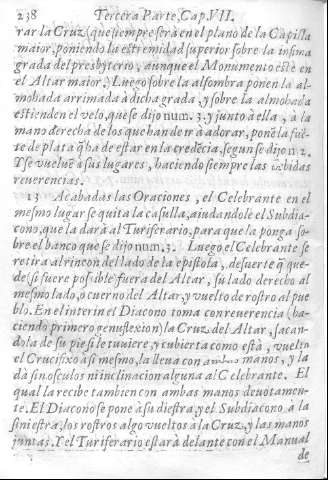 238 Tercera Parte, Cap. VII.
rar la Cruz (que siempre serà en el plano de la Capilla
maior, poniendo la estremidad superior sobre la infima
grada del presbyterio, aunque el Monumento estè en
el Altar maior.) Luego sobre la alfombra ponen la al-
mohada arrimada à dicha grada, y sobre la almohada
estienden el velo, que se dijo num. 3. y junto à ella, à la
mano derecha de los que han de ir à adorar, ponẽ la fuẽ-
te de plata q̃ ha de estar en la credẽcia, segun se dijo n. 2.
Y se vuelvẽ à sus lugares, haciendo siempre las debidas
reverencias.
13 Acabadas las Oraciones, el Celebrante en el
mesmo lugar se quita la casulla, aiudandole el Subdia-
cono, que la darà al Turiferario, para que la ponga so-
bre el banco que se dijo num. 3. Luego el Celebrante se
retira al rincon del lado de la epistola, de suerte q̃ que-
de (si fuere possible) fuera del Altar, su lado derecho al
mesmo lado, ò cuerno del Altar, y vuelto de rostro al pue
blo. En el interin el Diacono toma con reverencia (ha-
ciendo primero genuflexion) la Cruz del Altar, sacan-
dola de su pie si le tuviere, y cubierta como està, vuelto
el Crucifixo à sì mesmo, la lleva con ambas manos, y la
dà sin osculos ni inclinacion alguna al Celebrante. El
qual la recibe tambien con ambas manos devotamen-
te. El Diacono se pone à su diestra, y el Subdiacono à la
siniestra, los rostros algo vueltos à la Cruz, y las manos
juntas. Y el Turiferario estarà delante con el Manual
de